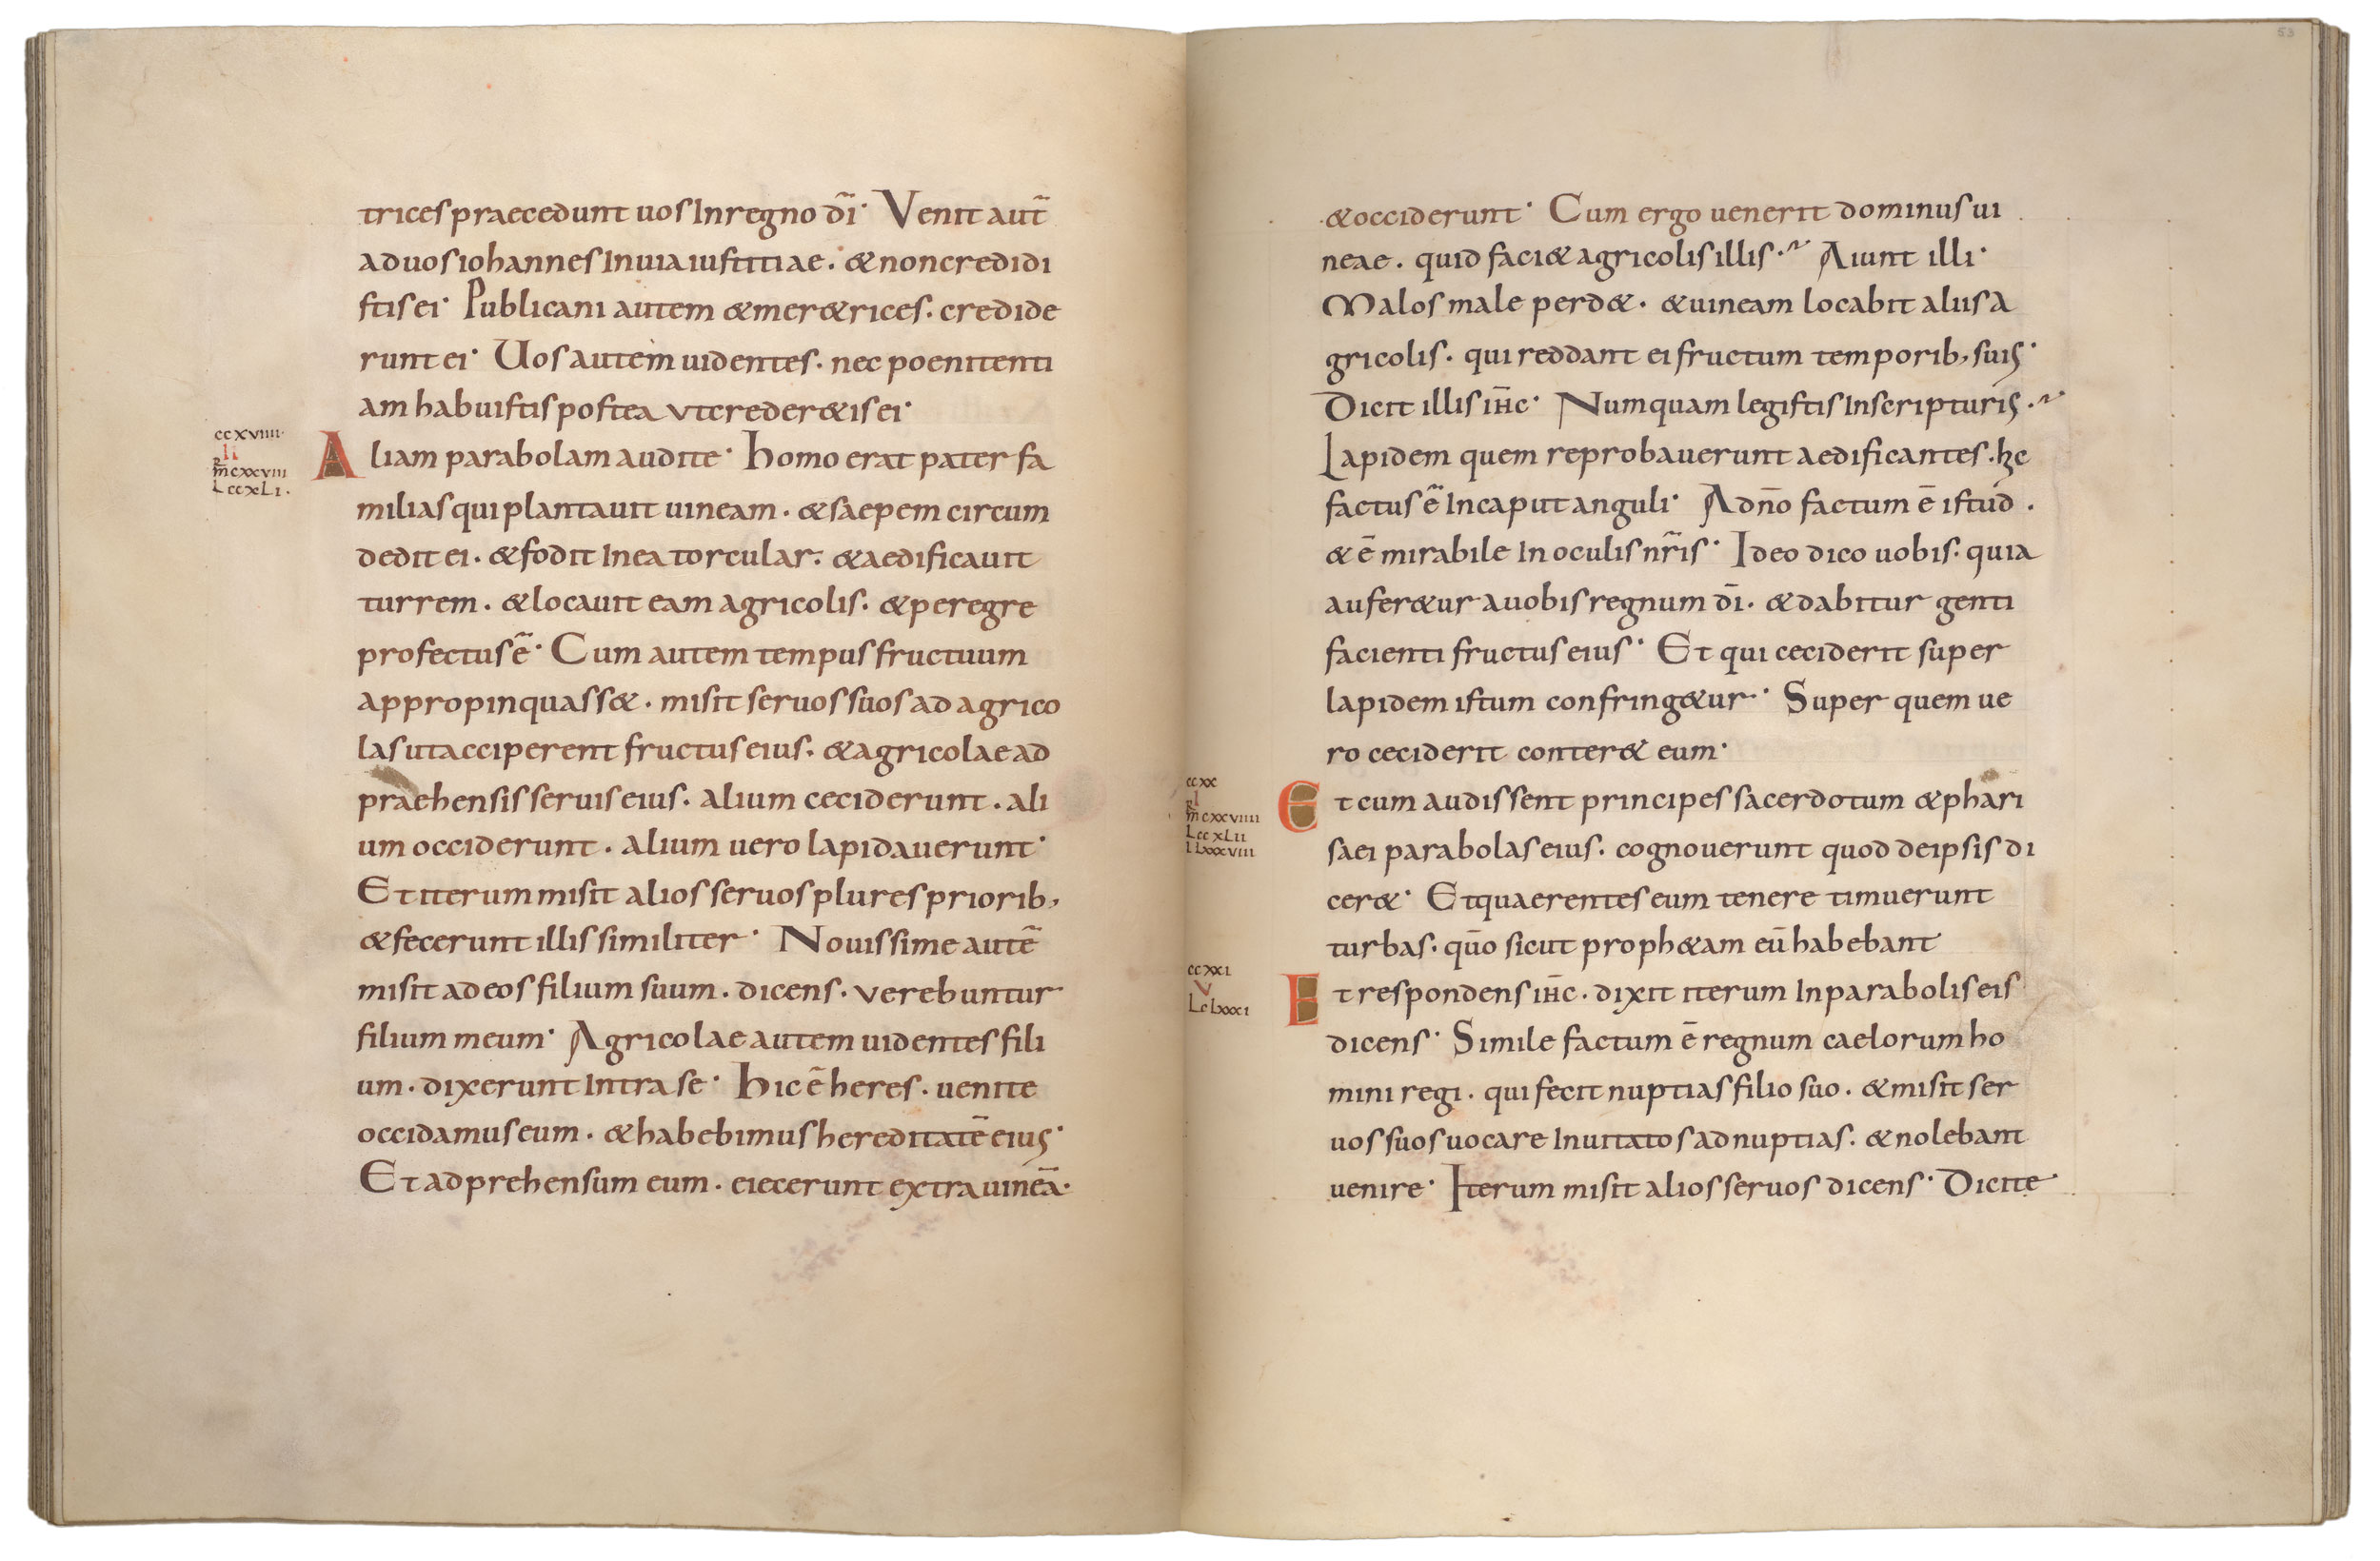 trices praecedunt uos In regno dī· Venit aut̄
ad uos iohannes In uia iustitiae. & non credidi
stis ei· Publicani autem & mer&rices. credide
runt ei· Uos autem uidentes. nec poenitenti
am habuistis postea vt creder&is ei·
ccxviiii·
II
mcxxviii
Lccxli·
Aliam parabolam audite· homo erat pater fa
milias qui plantauit uineam. & saepem circum
dedit ei. & fodit In ea torcular. & aedificauit
turrem. & locauit eam agricolis. & peregre
profectus ē· Cum autem tempus fructuum
appropinquass&. misit seruos suos ad agrico
las ut acciperent fructus eius. & agricolae ad
praehensis seruis eius. alium ceciderunt. ali
um occiderunt. alium uero lapidauerunt·
Et iterum misit alios seruos plures priorib,
& fecerunt illis similiter· Nouissime autē
misit ad eos filium suum. dicens. verebuntur
filium meum· Agricolae autem uidentes fili
um. dixerunt Intra se· hic ē heres. uenite
occidamus eum. & habebimus hereditatē eius·
Et adprehensum eum. eiecerunt extra uineā·
53
& occiderunt· Cum ergo uenerit dominus ui
neae. quid faci& agricolis illis.~ Aiunt illi·
Malos male perd&. & uineam locabit aliis a
gricolis. qui reddant ei fructum temporib, suis·
Dicit illis ih̄c· Numquam legistis In scripturis.~
Lapidem quem reprobauerunt aedificantes. hc
factus ē In caput anguli· A dn̄o factum ē istud.
& ē mirabile In oculis nr̄is· Ideo dico uobis. quia
aufer&ur a uobis regnum dī. & dabitur genti
facienti fructus eius· Et qui ceciderit super
lapidem istum confring&ur· Super quem ue
ro ceciderit conter& eum·
ccxx
I
mcxxviiii
Lccxlii
I Lxxxviii
Et cum audissent principes sacerdotum & phari
saei parabolas eius. cognouerunt quod de ipsis di
cer&· Et quaerentes eum tenere timuerunt
turbas. qūo sicut proph&am eū habebant
ccxxi
V
Lclxxxi
Et respondens ih̄c. dixit iterum In parabolis eis
dicens· Simile factum ē regnum caelorum ho
mini regi. qui fecit nuptias filio suo. & misit ser
uos suos uocare Inuitatos ad nuptias. & nolebant
uenire· Iterum misit alios seruos dicens· Dicite